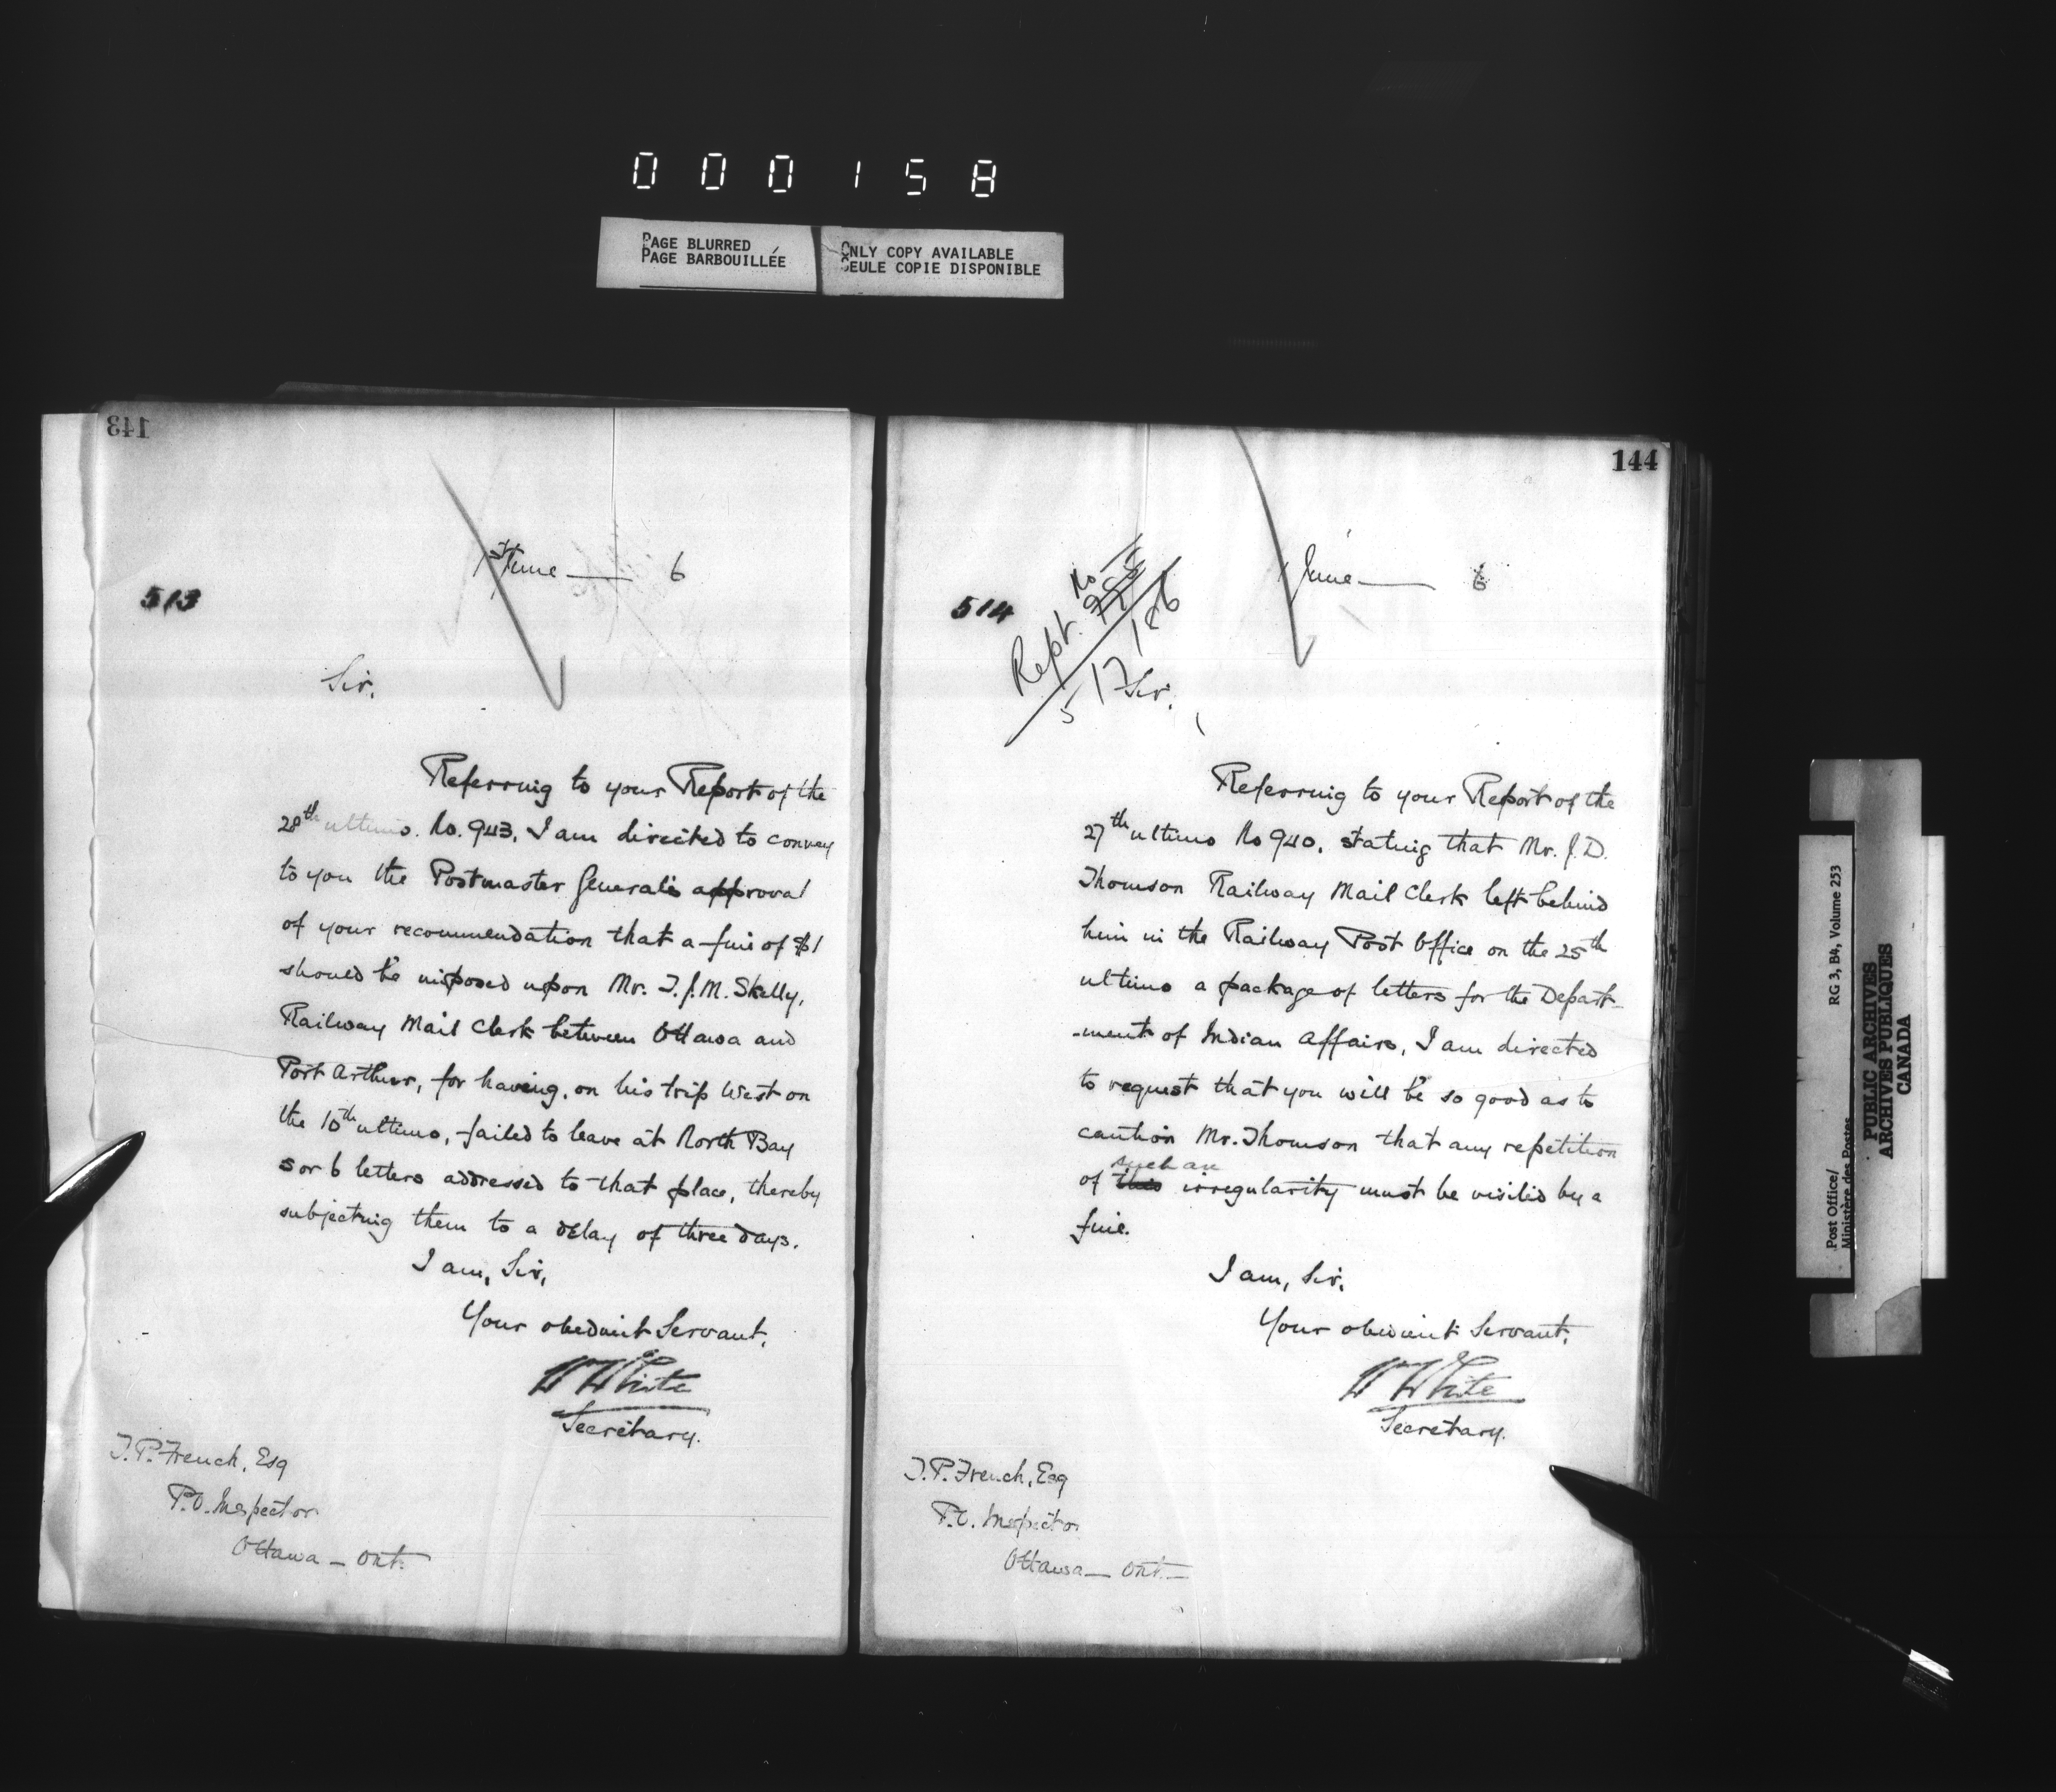 000158
PAGE BLURRED
PAGE BARBOUILLÉE
ONLY COPY AVAILABLE
SEULE COPIE DISPONIBLE
143
June — 6
513
Sir.
Referring to your Report of the
28th ultimo. No. 943, I am directed to convey
to you the Postmaster General's approval
of your recommendation that a fine of $1
should be imposed upon Mr. T.J.M. Skelly,
Railway Mail Clerk between Ottawa and
Port Arthur, for having, on his trip West on
the 10th ultimo, failed to leave at North Bay
5 or 6 letters addressed to that place, thereby
subjecting them to a delay of three days.
I am, Sir,
Your obedient Servant,
W White
Secretary.
T.P. French, Esq
P.O. Inspector
Ottawa — Ont.
144
June — 6
514
Rept. No
5/7/86
Sir.
Referring to your Report of the
27th ultimo No 940, stating that Mr. J.D.
Thomson Railway Mail Clerk left behind
him in the Railway Post Office on the 25th
ultimo a package of letters for the Depart-
-ment of Indian Affairs, I am directed
to request that you will be so good as to
caution Mr. Thomson that any repetition
such an
of this irregularity must be visited by a
fine.
I am, Sir,
Your obedient Servant,
W White
Secretary.
T.P. French, Esq
P.O. Inspector
Ottawa — Ont. —
Post Office/ RG 3, B4, Volume 253
Ministère des Postes
PUBLIC ARCHIVES
ARCHIVES PUBLIQUES
CANADA